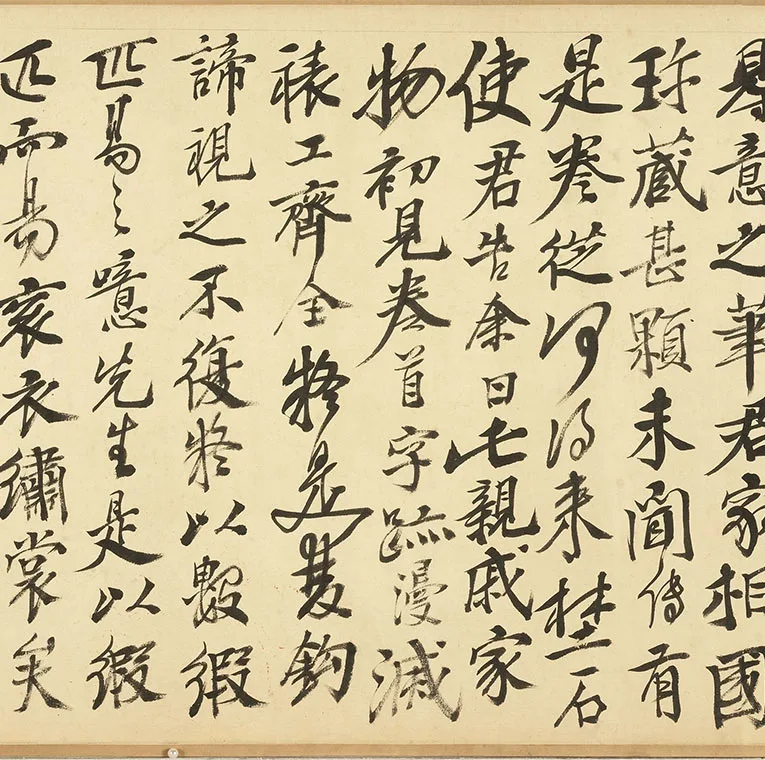 意之筆君家相國
珎藏甚顆未聞傳有
是卷從何得來埜石
使君告余曰此親戚家
物初見卷首字跡漫滅
裱工齊全疑是雙鈎
諦視之不復疑以數緞
匹易之噫先生是以緞
匹而易袞衣繡裳矣